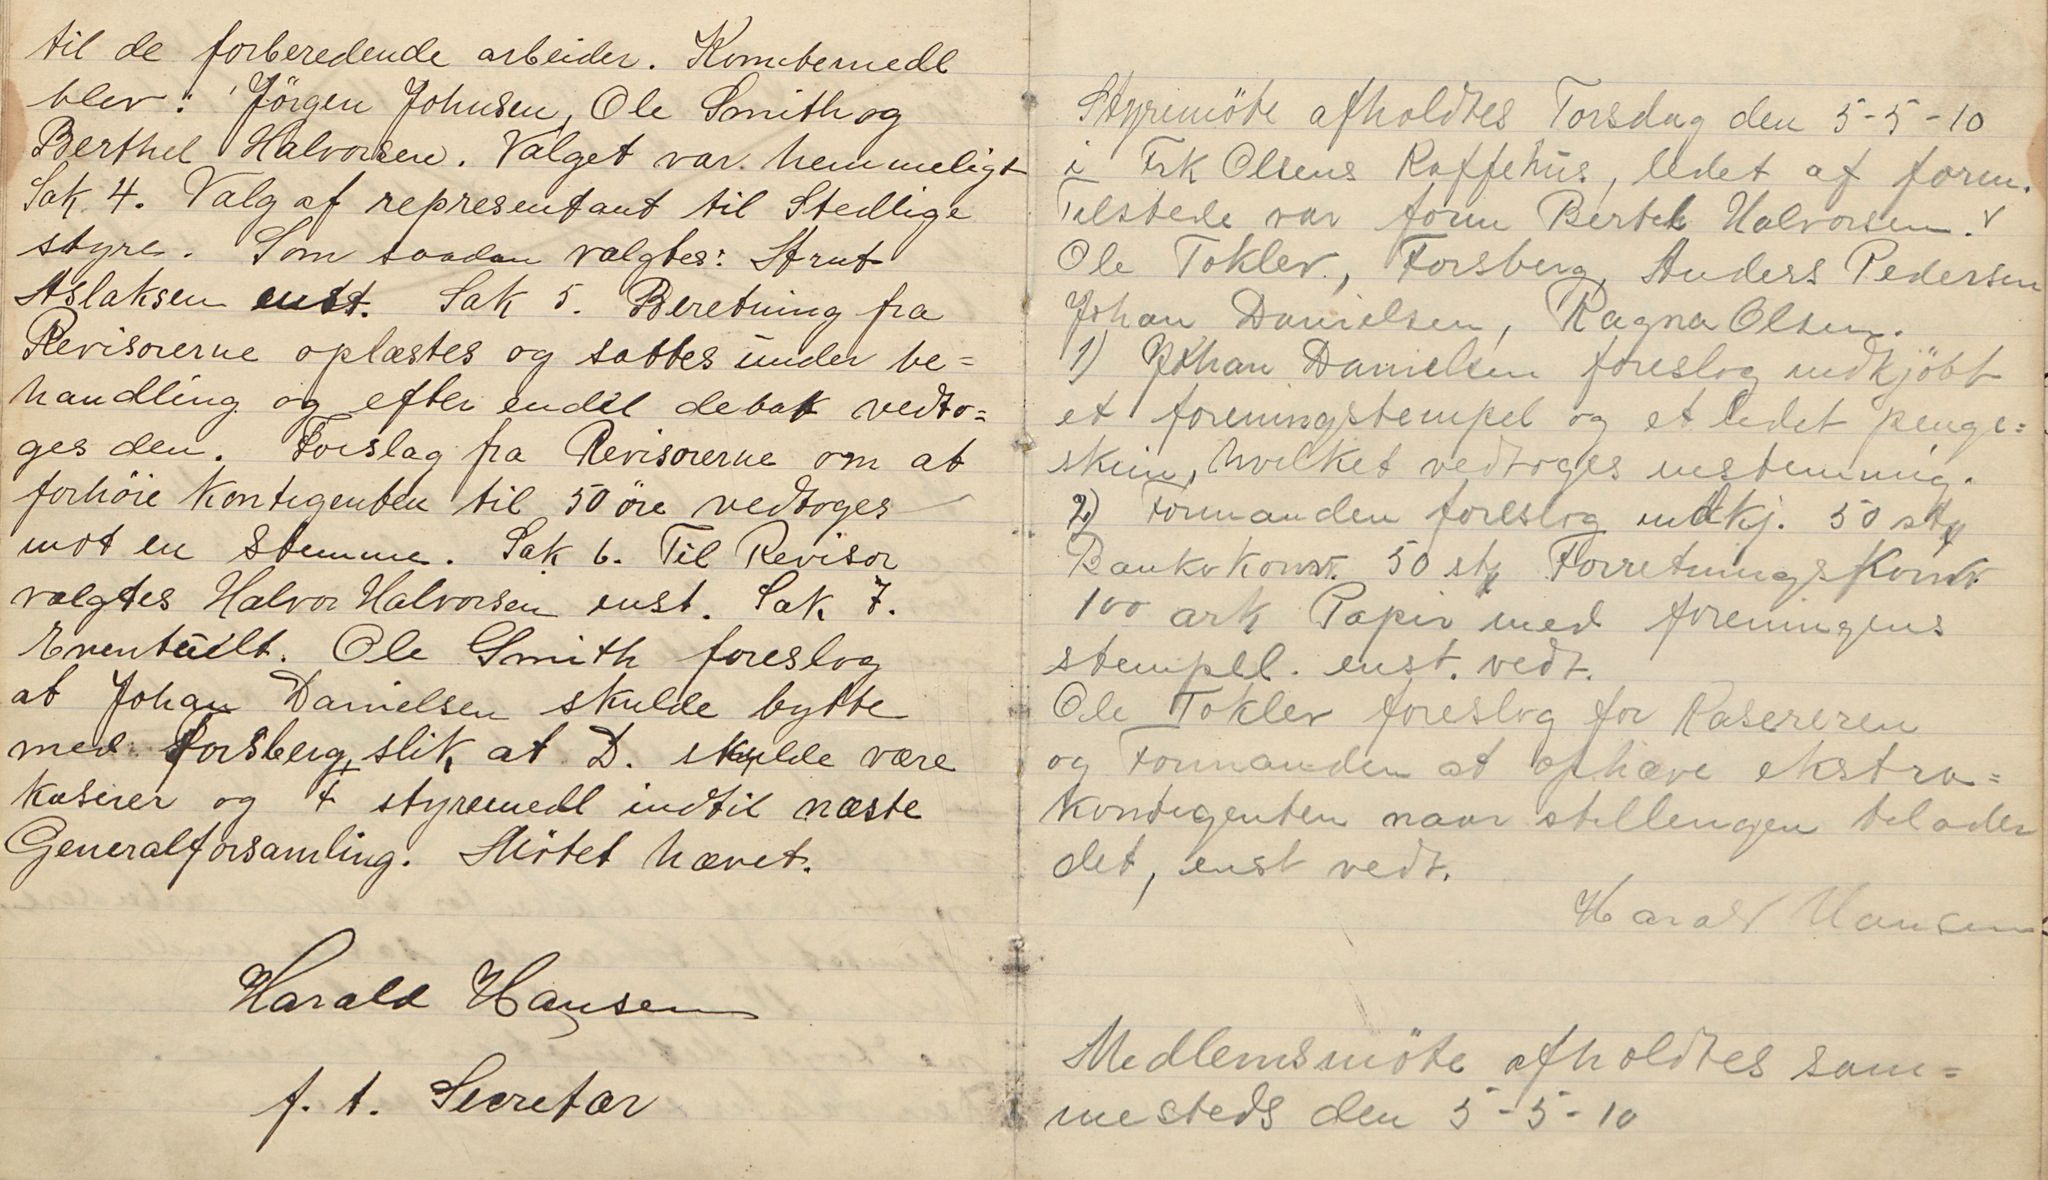 til de forberedende arbeider. Komitemedl
blev: Jörgen Johnsen, Ole Smith og
Berthel Halvorsen. Valget var hemmeligt
Sak 4. Valg af representant til Stedlige
styre. Som saadan valgtes: Strut
Aslaksen enst. Sak 5. Beretning fra
Revisorerne oplæstes og sattes under be=
handling og efter endel debat vedto=
ges den. Forslag fra Revisorerne om at
forhöie Kontigenten til 50 öre vedtoges
mot en stemme. Sak 6. Til Revisor
valgtes Halvor Halvorsen enst. Sak 7.
Eventuelt. Ole Smith foreslog
at Johan Danielsen skulde bytte
med Forsberg, slik at D. skulde være
kaserer og F styremedl indtil næste
Generalforsamling. Mötet hævet.
Harald Hansen
f. t. Secretær
Styremöte afholdtes Torsdag den 5-5-10
i Frk Olsens Kaffehus, ledet af form.
Tilstede var form Bertel Halvorsen.
Ole Toklev, Forsberg, Anders Pedersen
Johan Danielsen, Ragna Olsen.
1) Johan Danielsen foreslog indkjöbt
et foreningstempel og et ledet penge=
skrin, hvilket vedtoges enstemmig.
2) Formanden foreslog indkj. 50 stk
Bankokonv. 50 stk Forretningskonv
100 ark Papir med foreningens
stempel. enst. vedt.
Ole Toklev foreslog for Kasereren
og Formanden at ophæve ekstra=
kontigenten naar stillengen tilader
det, enst vedt.
Harald Hansen
Medlemsmöte afholdtes sam=
mesteds den 5-5-10